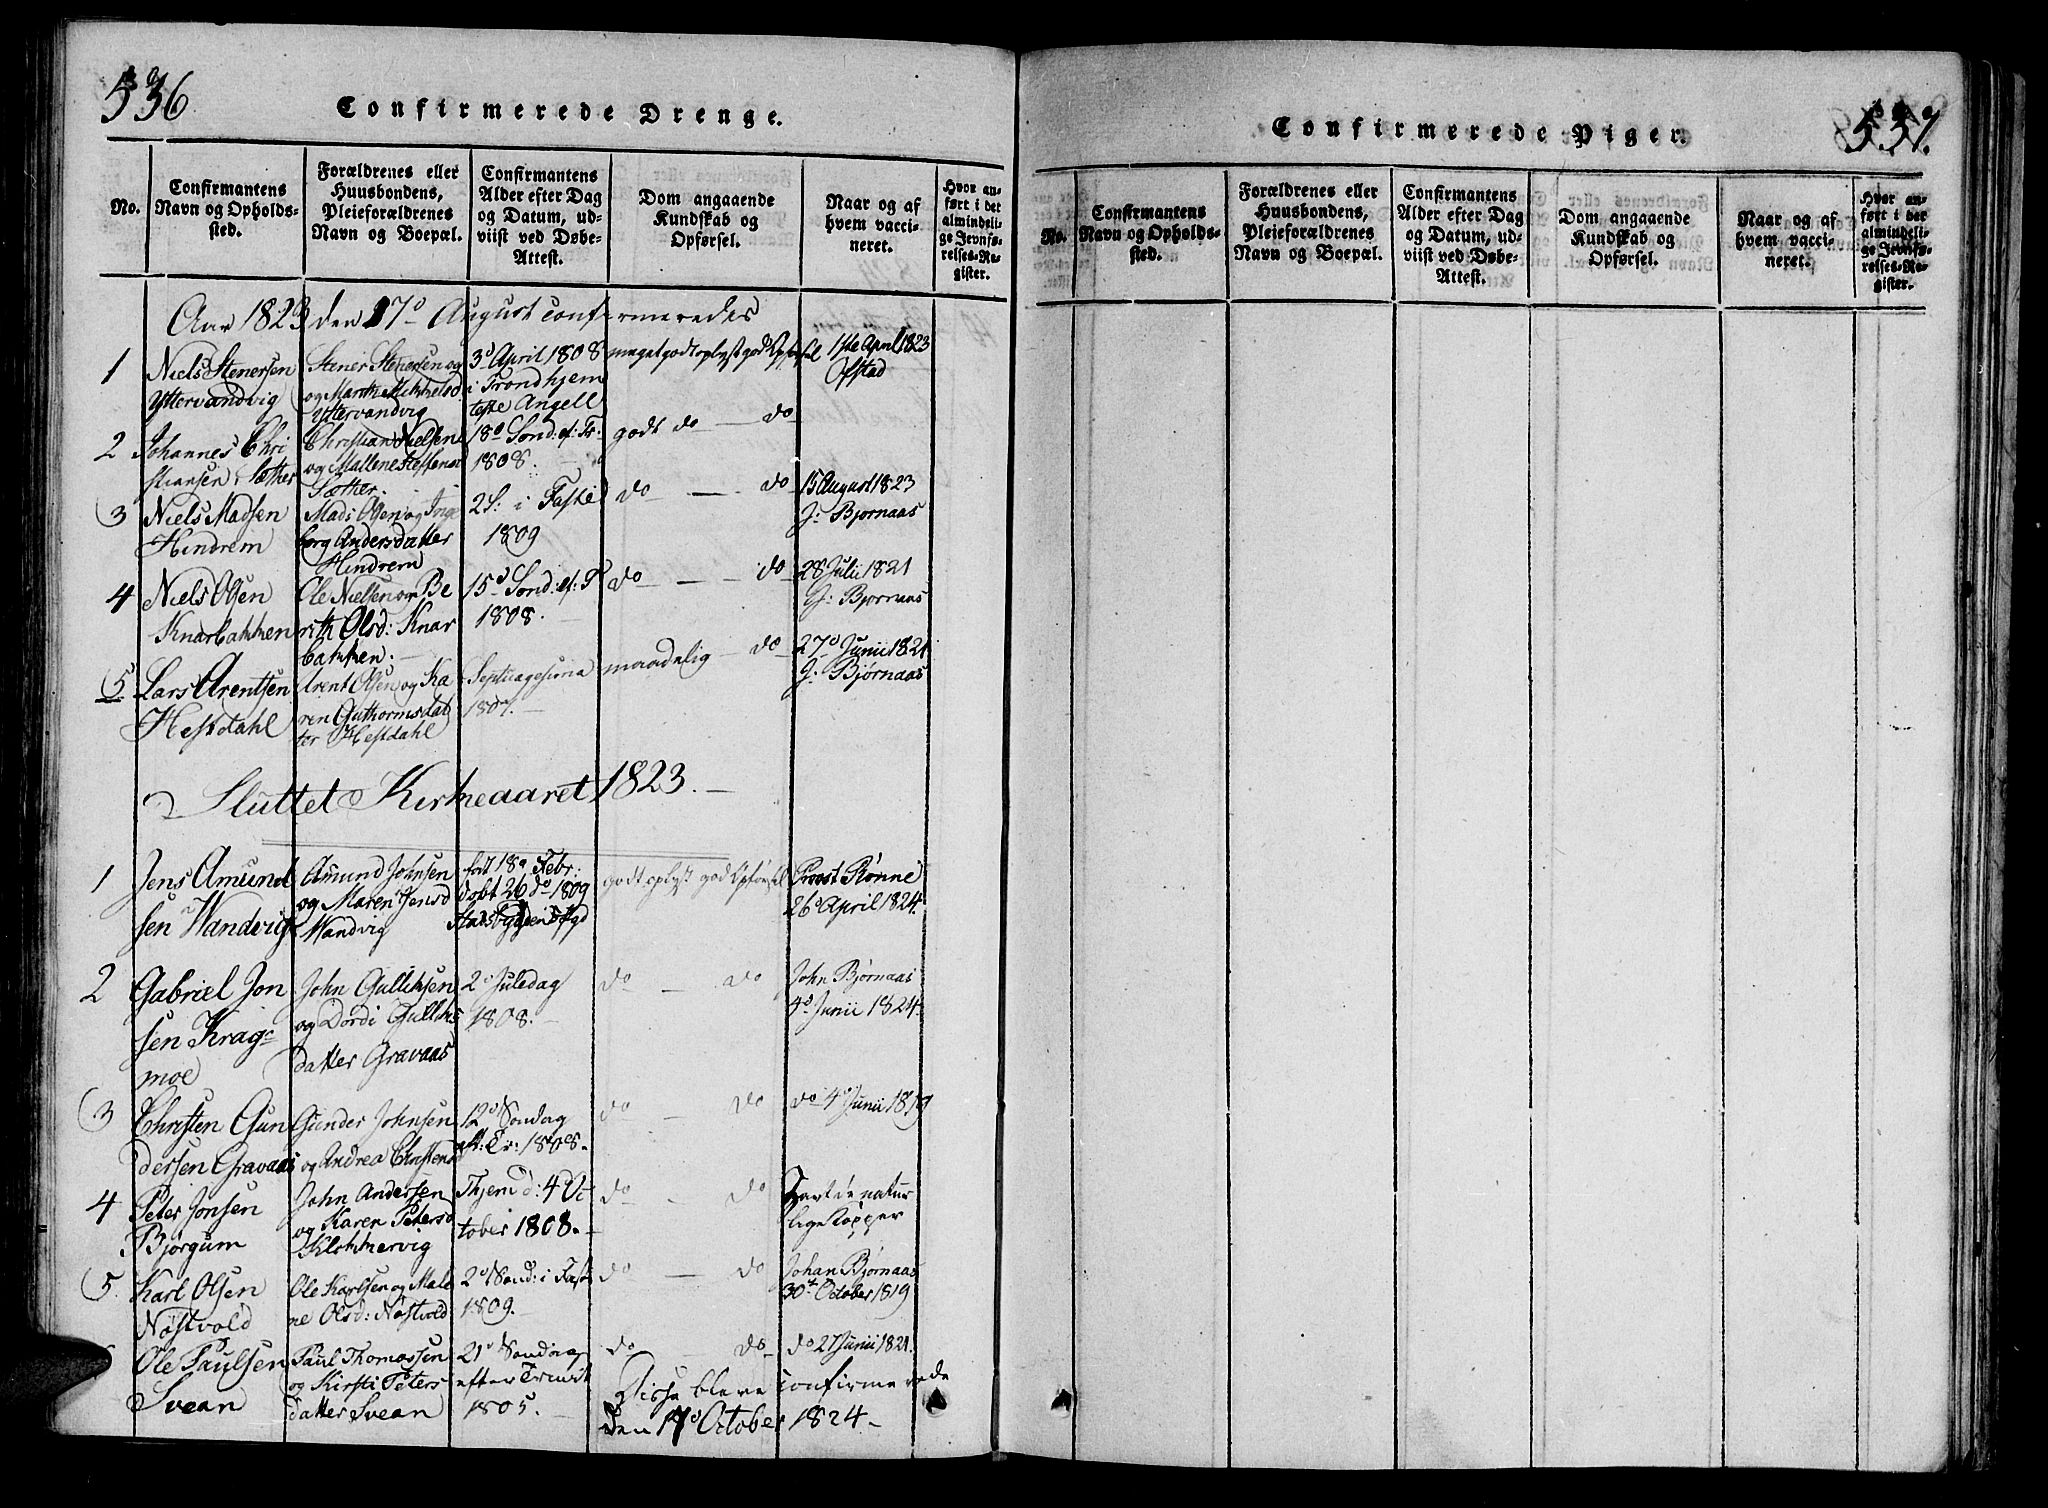 536
Confirmerede Drenge.
No.
Confirmantens Navn og Opholds-sted.
Forældrenes eller Huusbondens, Pleieforældrenes Navn og Boepæl.
Confirmantens Alder efter Dag og Datum, ud-viist ved Døbe-Attest.
Dom angaaende Kundskab og Opførsel.
Naar og af hvem vacci-neret.
Hvor an-ført i det almindeli-ge Jevnfø-relses-Re-gister.
Aar 1823 den 17de August confirmeredes
1
Niels Stenersen
Yttervandvig
Stener Stenersen og
og Marith Mikkelsd
Yttervandvig
3d April 1808
i Trondhjem
teste Angell
meget godt oplyst god Opførsel
11te April 1823
Ofstad
2
Johannes Chri
stiansen Sæther
Christian Nielsen
og Mallene Steffensd
Sæther.
18d Sond: ef: Tr:
1808.
godt do — do
3
Niels Madsen
Hindrem
Mads Olsen og Inge
borg Andersdatter
Hindrem
2 S: i Faste
1809
do — do
15 August 1823
J: Bjørnaas
4
Niels Olsen
Knarbakken
Ole Nielsen og Be
rith Olsd: Knar
bakken.
15d Sond: ef: T
1808.
do — do
28 Julii 1821
J: Bjørnaas
5
Lars Arentsen
Hestdahl
Arent Olsen og Ka
ren Guthormsdat
ter Hestdahl
Septuagesima
1807.
maadelig — do
27d Junii 1821
J: Bjørnaas
Sluttet Kirkeaaret 1823.
1
Jens Amund
sen Wandvig
Amund Johnsen
og Maren Jensd
Wandvig
født 18d Febr:
døbt 26 do 1809
Stadsbygdens Pgd
godt oplyst god Opførsel
Provst Rønne
26d April 1824.
2
Gabriel Jon
sen Krag-
moe
John Gulliksen
og Dordi Gulliks
datter Gravaas
2d Juledag
1808.
do — do
John Bjørnaas
4d Junii 1824.
3
Christen Gun
dersen Gravaas
Gunder Johnsen
og Andrea Christensd
12d Søndag
eft: Tr: 1808.
do — do
do 4d Junii 1819
4
Peter Jonsen
Bjørgum
John Andersen
og Karen Petersd
Klokkervig
Thjem d: 4 Oc
tober 1808.
do — do
havt de natur
lige Kopper
5
Karl Olsen
Nøstvold
Ole Karlsen og Male
ne Olsd: Nøstvold
2d Sond: i Faste
1809.
do — do
Johan Bjørnaas
30te October 1819
Ole Paulsen
Svean
Paul Thomassen
og Kirsti Peters
datter Svean
21d Søndag
efter Trinit
1805.
do — do
do 27 Junii 1821.
Disse bleve confirmerede
den 17d October 1824.
537.
Confirmerede Piger.
No.
Confirmantens Navn og Opholds-sted.
Forældrenes eller Huusbondens, Pleieforældrenes Navn og Boepæl.
Confirmantens Alder efter Dag og Datum, ud-viist ved Døbe-Attest.
Dom angaaende Kundskab og Opførsel.
Naar og af hvem vacci-neret.
Hvor an-ført i det almindeli-ge Jevnfø-relses-Re-gister.